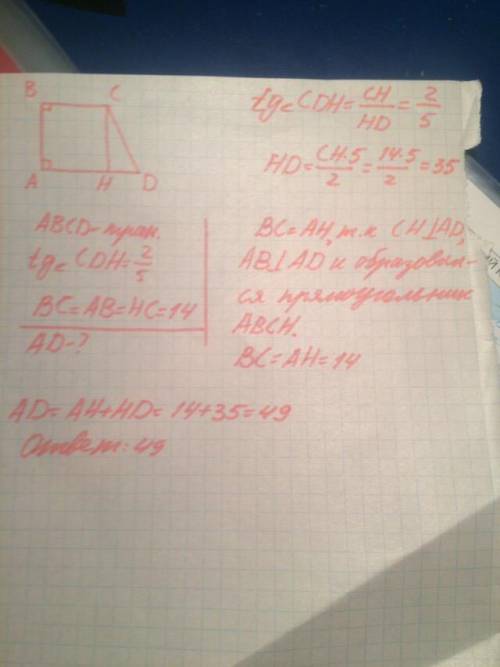 B C
A H D
tg∠CDH = CH/HD = 2/5
HD = CH·5/2 = 14·5/2 = 35
ABCD - трап.
tg∠CDH = 2/5
BC = AB = HC = 14
AD - ?
BC = AH, т.к CH⊥AD,
AB⊥AD и образовал-
ся прямоугольник
ABCH.
BC = AH = 14
AD = AH + HD = 14 + 35 = 49
Ответ: 49